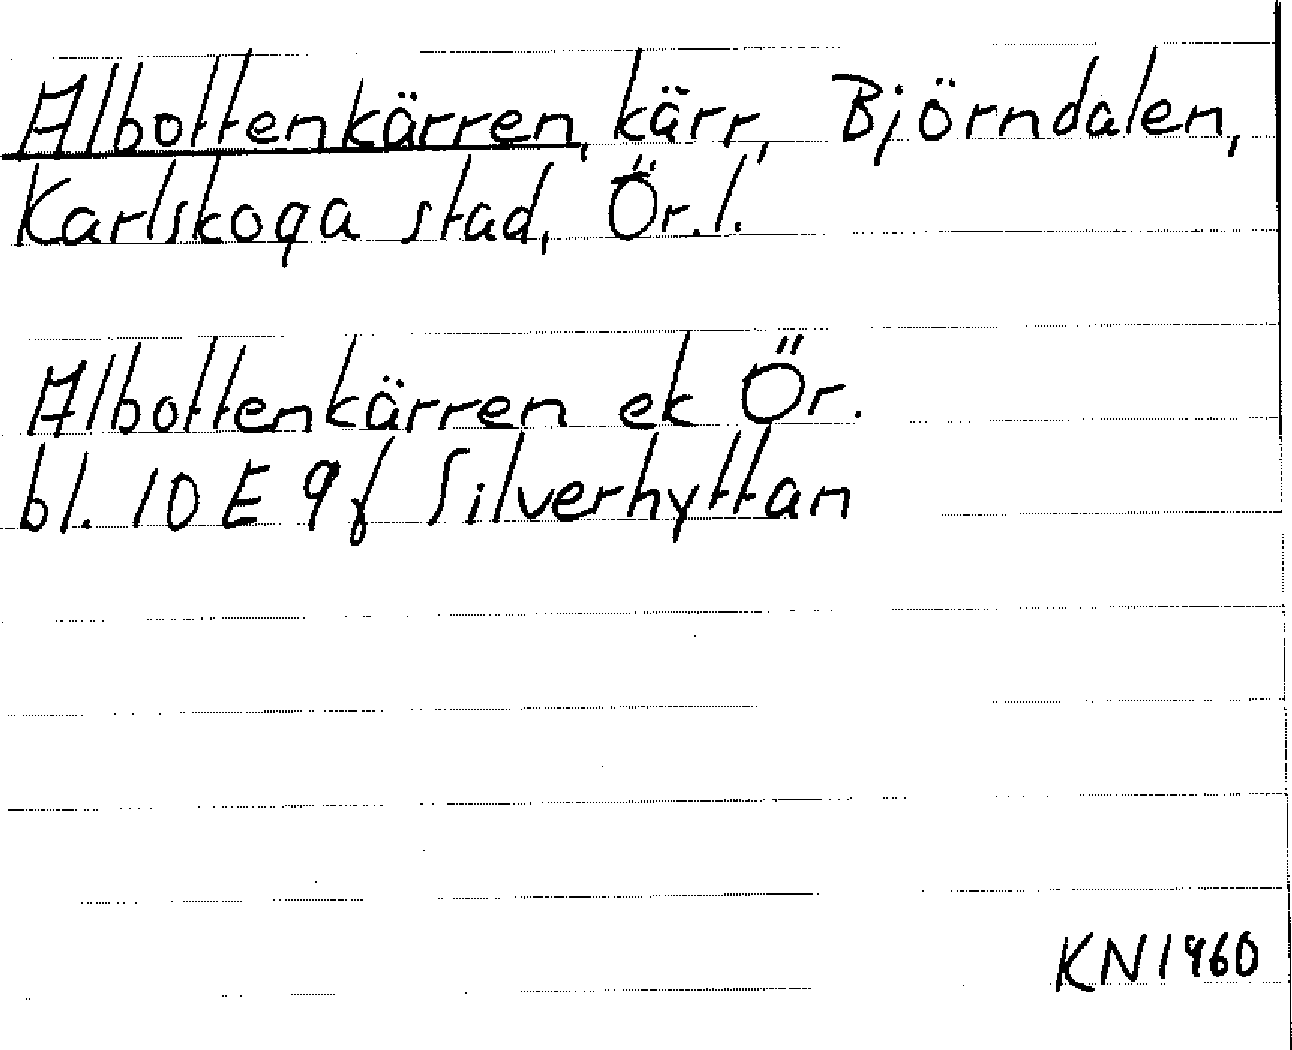 Albottenkärren, kärr, Björndalen,
Karlskoga stad, Ör.l.
Albottenkärren ek Ör.
bl. 10 E 9f Silverhyttan
KN 1960